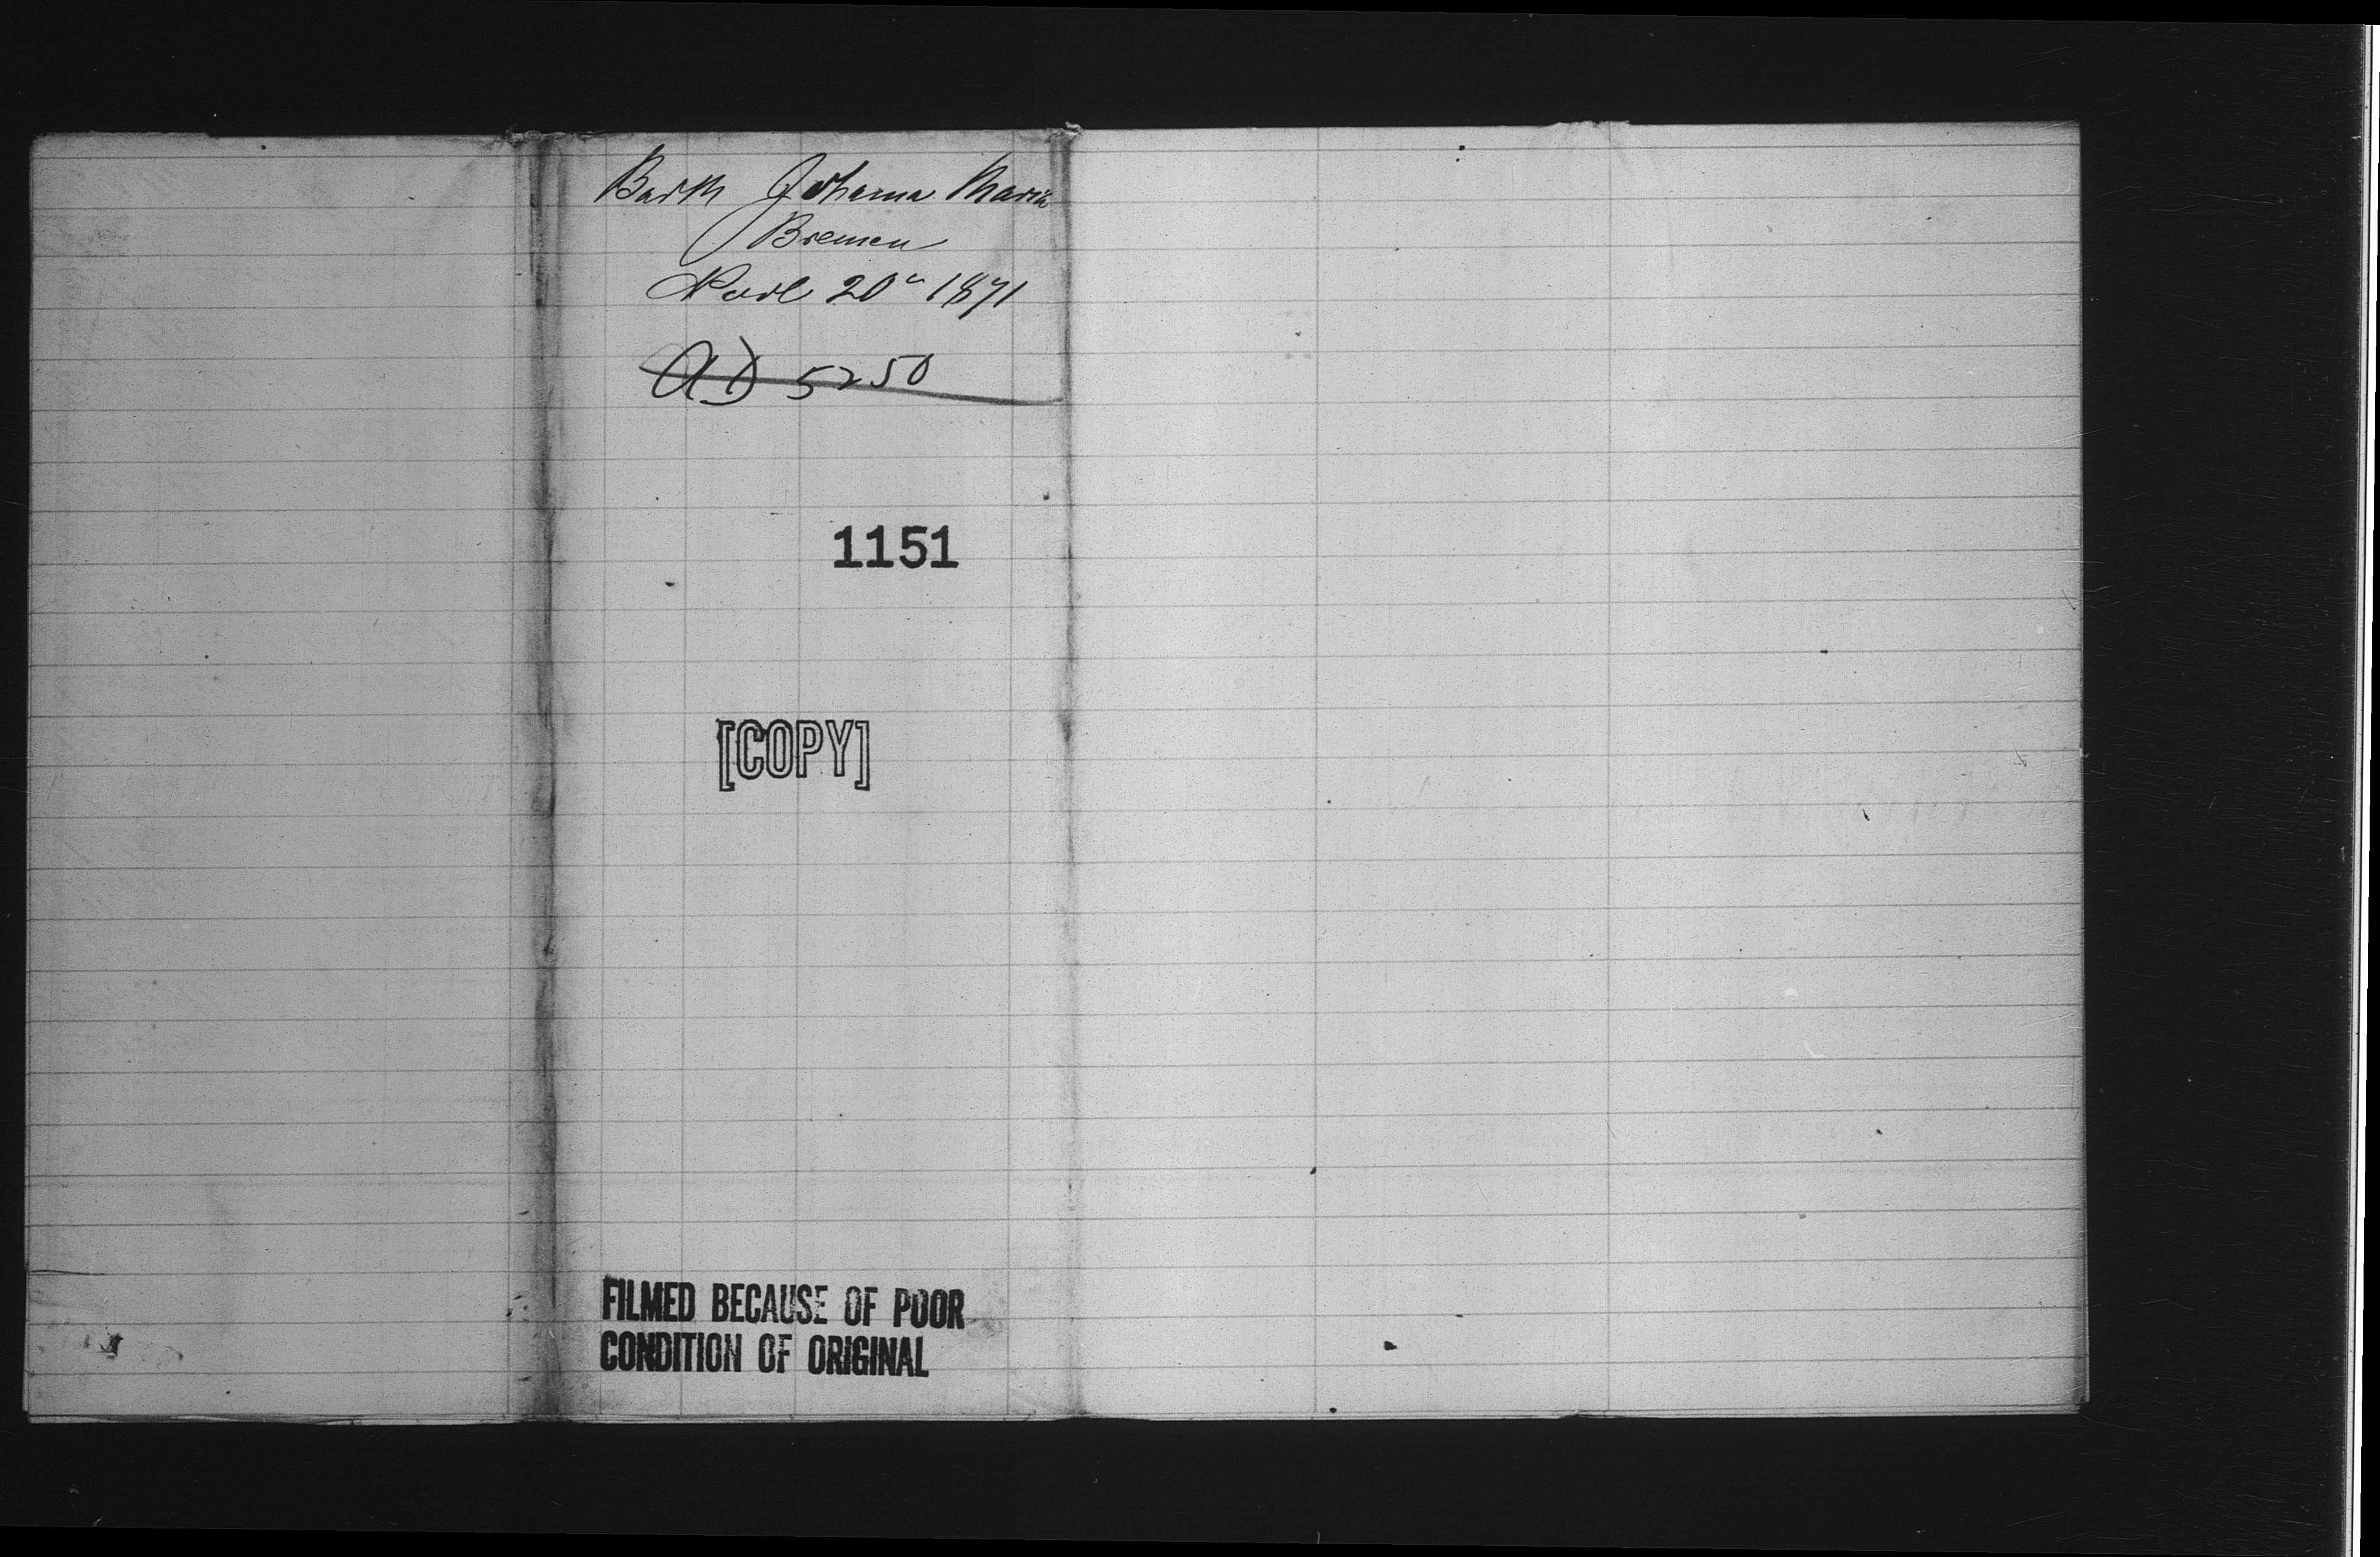 Barth Johanna Maria
Bremen
April 20" 1871
AD 5250
1151
[COPY]
FILMED BECAUSE OF POOR
CONDITION OF ORIGINAL